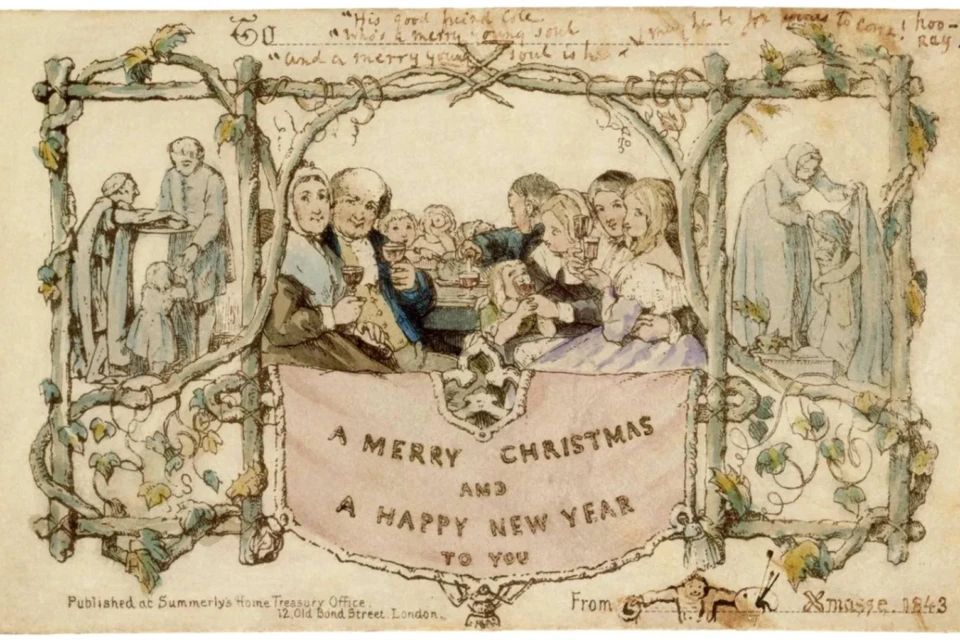 To
"His good friend Cole
"Who's a merry young soul
"And a merry young soul is he"
may he be for years to come! hoo-
ray!
A MERRY CHRISTMAS
AND
A HAPPY NEW YEAR
TO YOU
Published at Summerly's Home Treasury Office.
12, Old Bond Street. London.
From
Xmasse. 1843